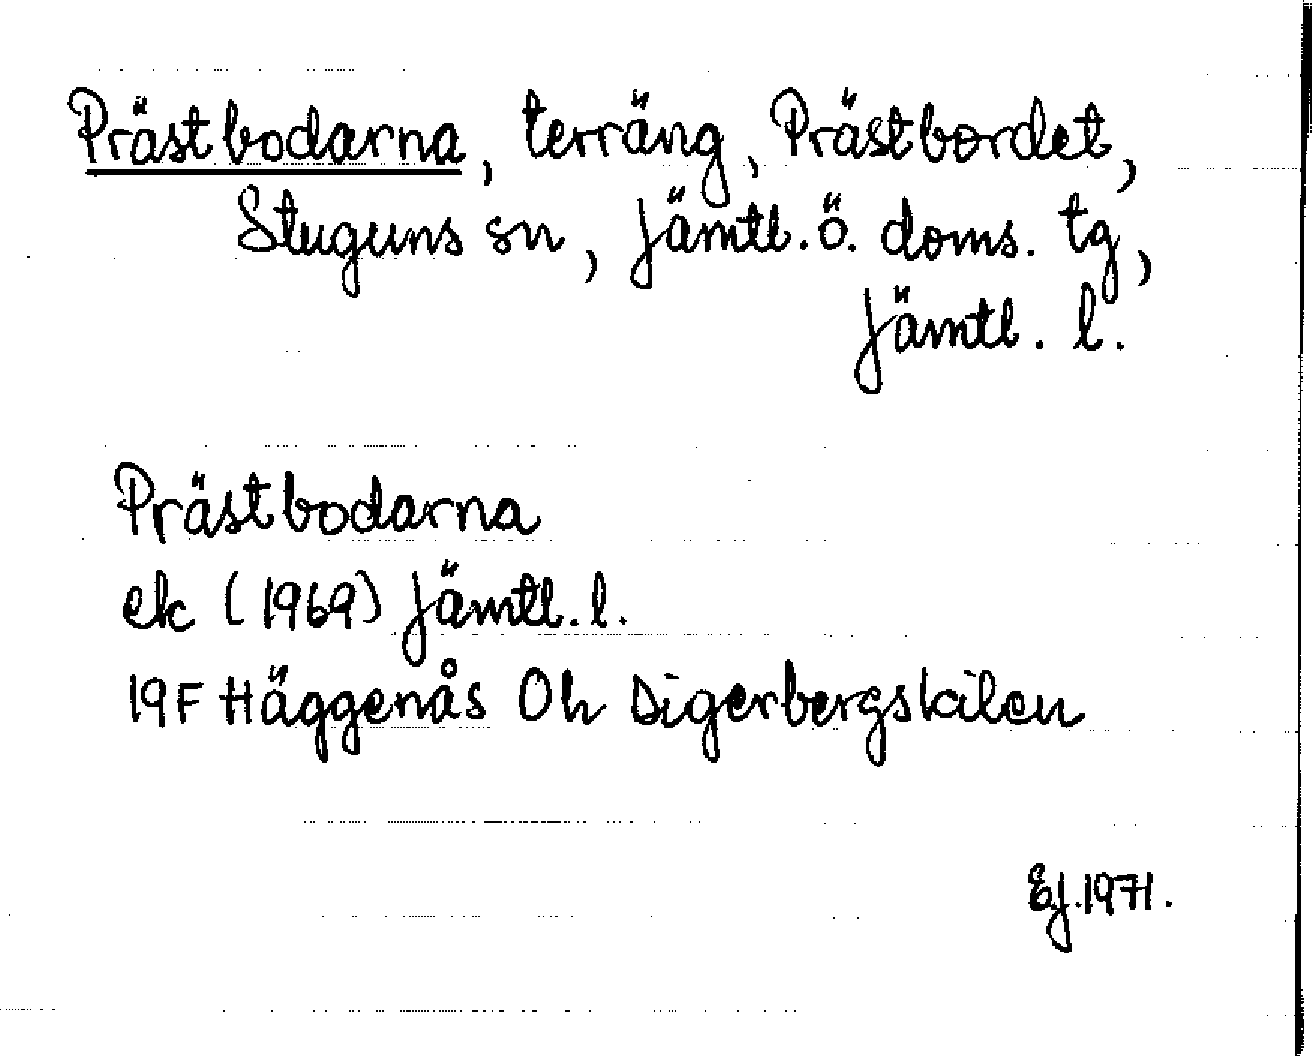 Prästbodarna, terräng, Prästbordet,
Stuguns sn, Jämtl. ö. doms. tg,
Jämtl. l.
Prästbodarna
ek (1969) Jämtl. l.
19F Häggenås 0h Digerbergskilen
EJ. 1971.